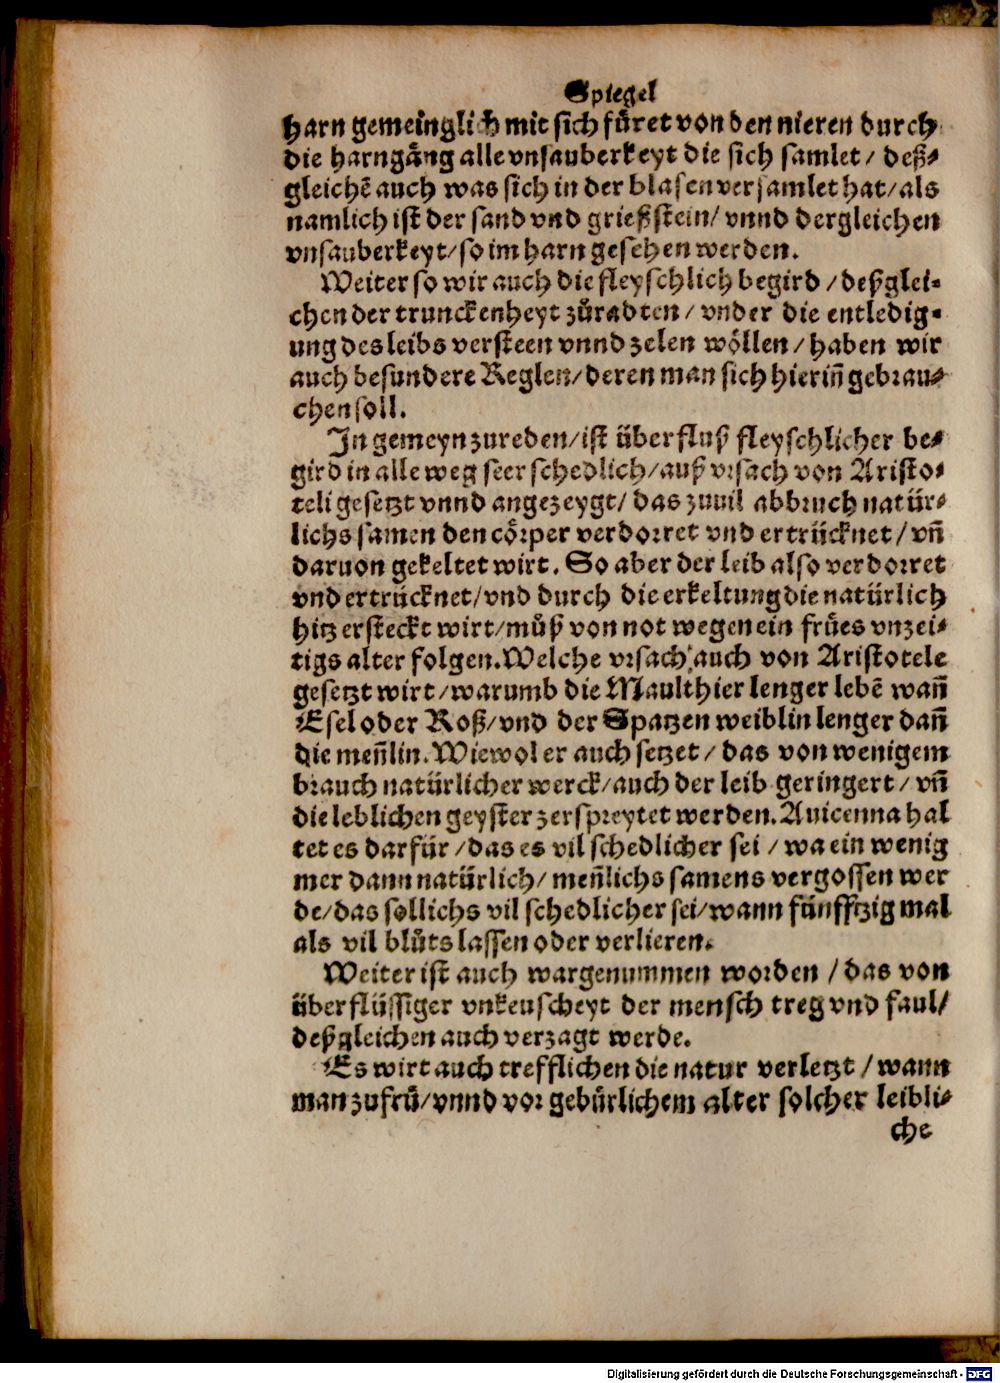 Spiegel
harn gemeinglich mit sich fůret von den nieren durch
die harngäng alle vnsauberkeyt die sich samlet / deß⸗
gleichē auch was sich in der blasen versamlet hat / als
namlich ist der sand vnd grießstein / vnnd dergleichen
vnsauberkeyt / so im harn gesehen werden.
Weiter so wir auch die fleyschlich begird / deßglei⸗
chen der trunckenheyt zůradten / vnder die entledig⸗
ung des leibs versteen vnnd zelen wöllen / haben wir
auch besundere Reglen / deren man sich hierin̄ gebrau⸗
chen soll.
In gemeyn zureden / ist überfluß fleyschlicher be⸗
gird in alle weg seer schedlich / auß vrsach von Aristo⸗
teli gesetzt vnnd angezeygt / das zuuil abbruch natür⸗
lichs samen den cörper verdorret vnd ertrücknet / vn̄
daruon gekeltet wirt. So aber der leib also verdorret
vnd ertrücknet / vnd durch die erkeltung die natürlich
hitz ersteckt wirt / můß von not wegen ein frůes vnzei⸗
tigs alter folgen. Welche vrsach auch von Aristotele
gesetzt wirt / warumb die Maulthier lenger lebē wan̄
Esel oder Roß / vnd der Spatzen weiblin lenger dan̄
die men̄lin. Wiewol er auch setzet / das von wenigem
brauch natürlicher werck / auch der leib geringert / vn̄
die leblichen geyster zerspreytet werden. Auicenna hal
tet es darfür / das es vil schedlicher sei / wa ein wenig
mer dann natürlich / men̄lichs samens vergossen wer
de / das sollichs vil schedlicher sei / wann fünfftzig mal
als vil blůts lassen oder verlieren.
Weiter ist auch wargenummen worden / das von
überflüssiger vnkeuscheyt der mensch treg vnd faul /
deßgleichen auch verzagt werde.
Es wirt auch trefflichen die natur verletzt / wann
man zufrů / vnnd vor gebürlichem alter solcher leibli⸗
che
Digitalisierung gefördert durch die Deutsche Forschungsgemeinschaft - DFG